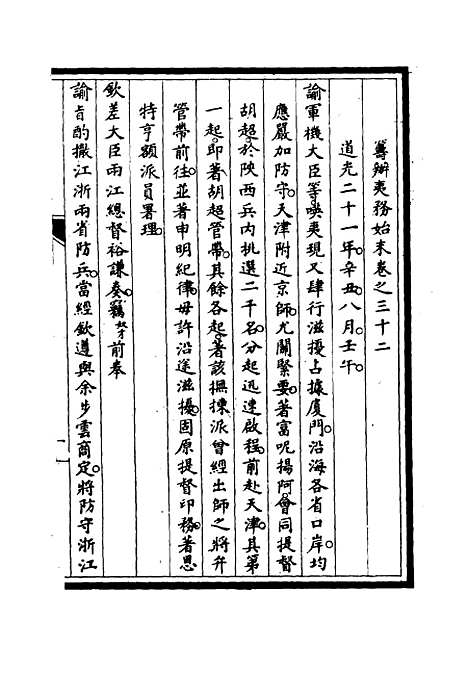 籌辦夷務始末卷之三十二
道光二十一年。辛丑。八月。壬午。
諭軍機大臣等。㗸夷現又肆行滋擾。占據廈門。沿海各省口岸。均
應嚴加防守。天津附近京師。尤關緊要。著富呢揚阿。會同提督
胡超。於陝西兵內挑選二千名。分起迅速啟程。前赴天津。其第
一起。即著胡超管帶。其餘各起。著該撫揀派曾經出師之將弁
管帶前往。並著申明紀律。毋許沿途滋擾。固原提督印務。著恩
特亨額派員署理。
欽差大臣兩江總督裕謙奏。竊奴才前奉
諭旨。酌撤江浙兩省防兵。當經欽遵與余步雲商定。將防守浙江
一